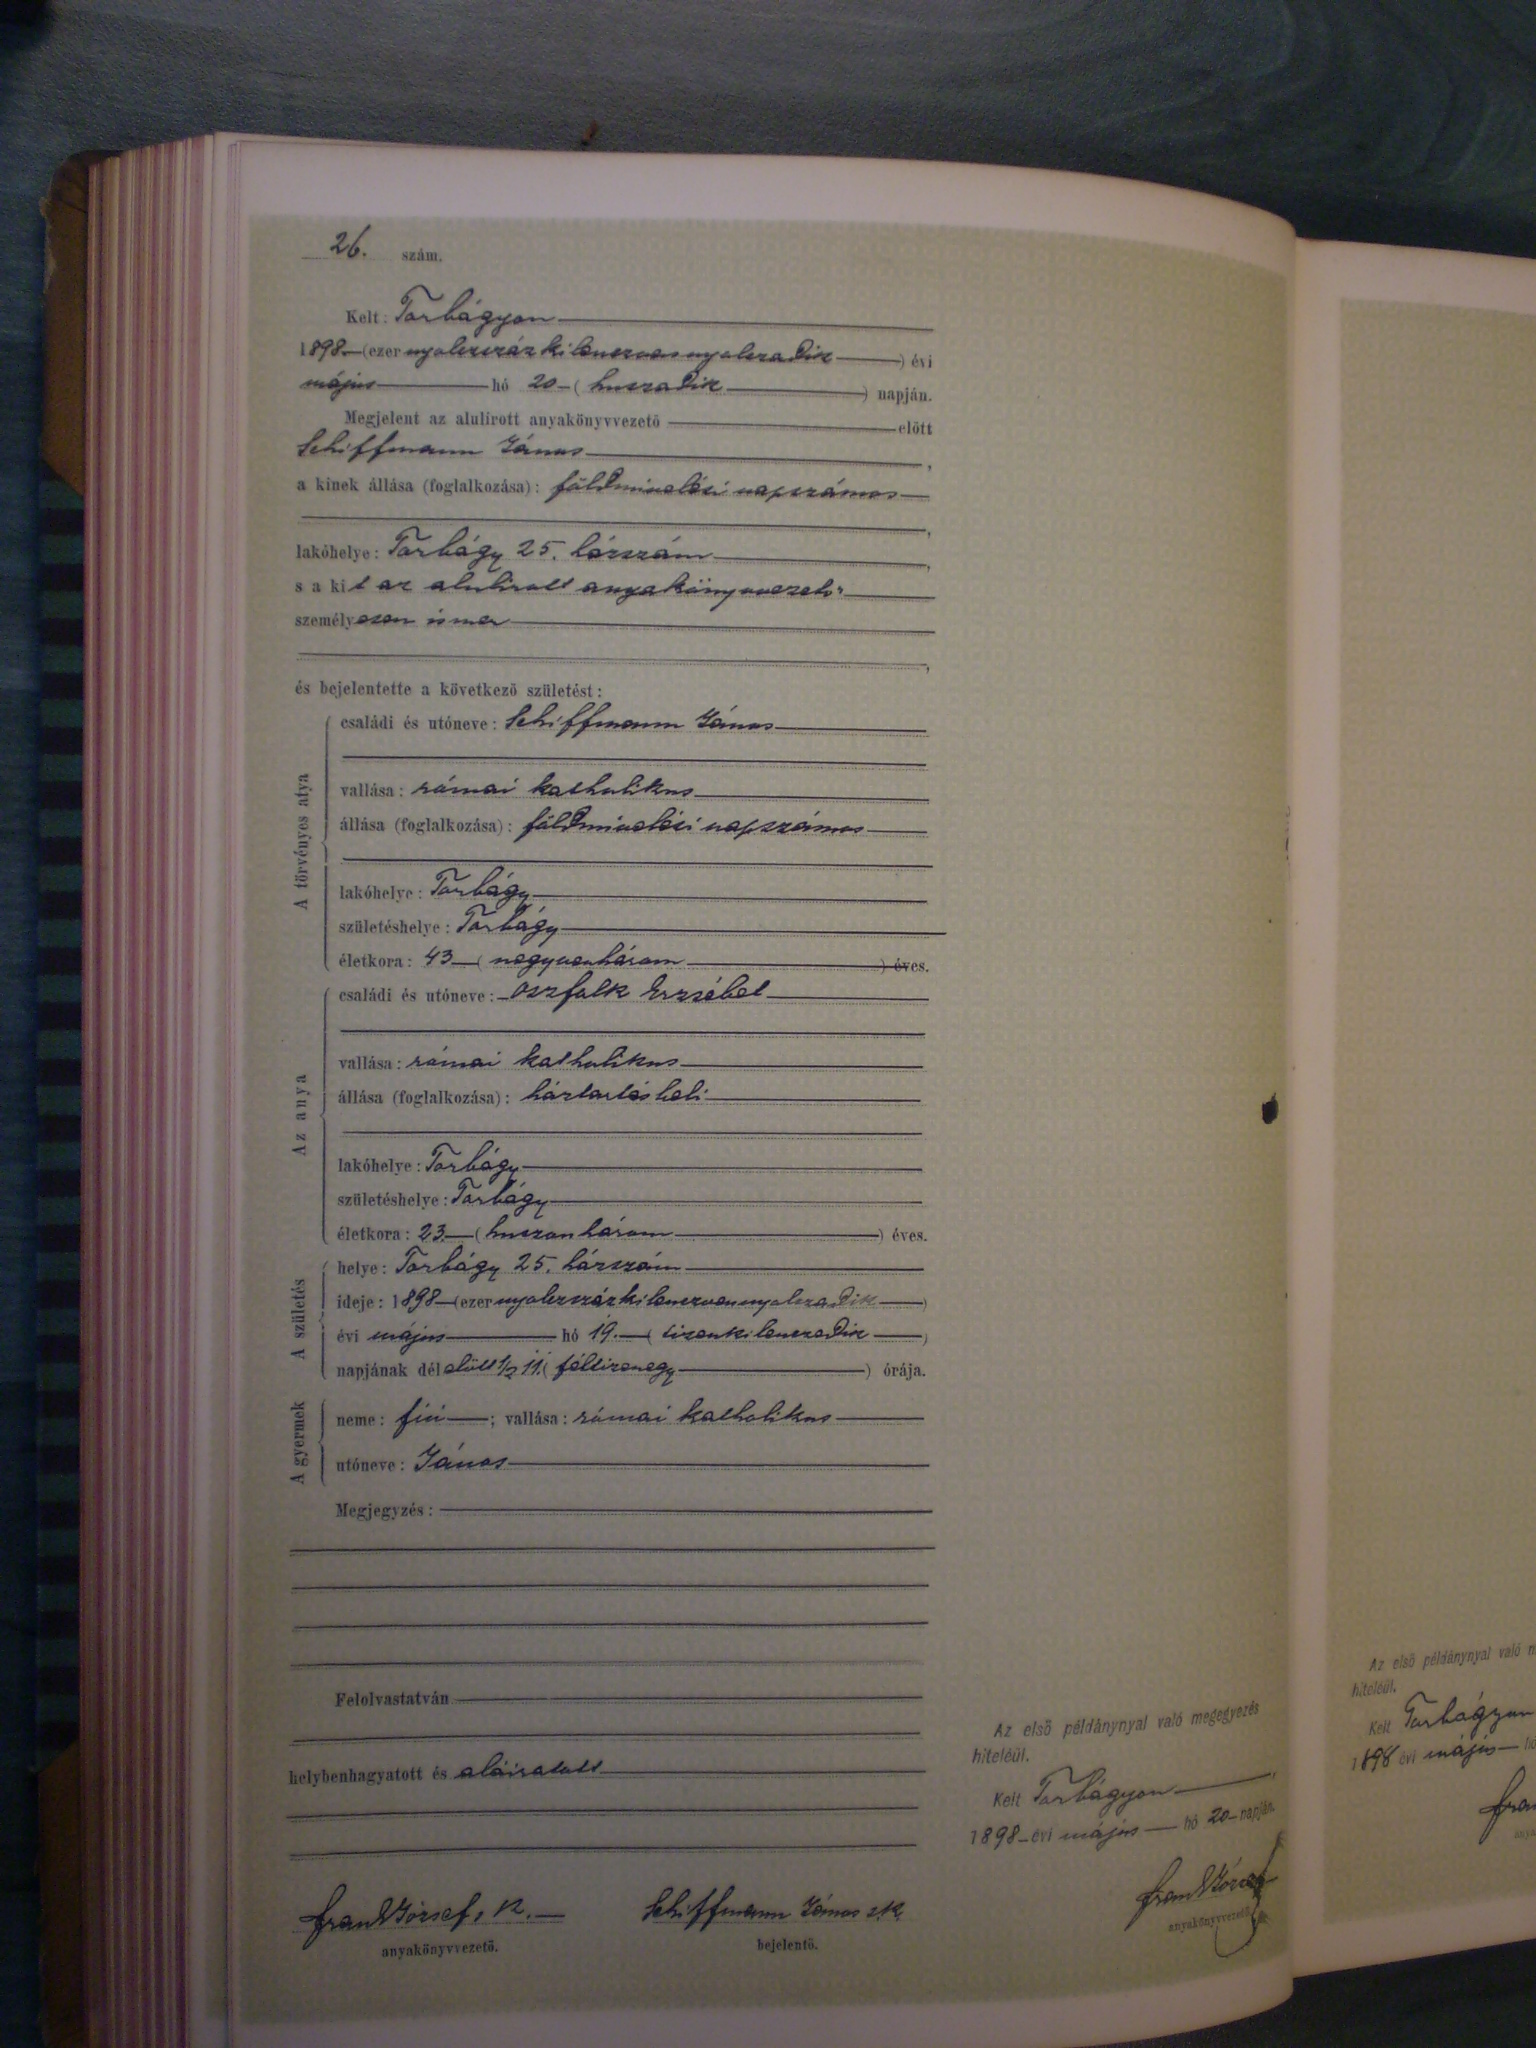 26. szám.
Kelt: Torbágyon
1898 (ezer nyolczszáz kilenczvennyolczadik) évi
május hó 20 (huszadik) napján.
Megjelent az alulirott anyakönyvvezető előtt
Schiffmann János,
a kinek állása (foglalkozása): földmivelési napszámos
,
lakóhelye: Torbágy 25. házszám,
s a kit az alulirott anyakönyvvezető
személyesen ismer
,
és bejelentette a következő születést:
A törvényes atya
családi és utóneve: Schiffmann János
vallása: római katholikus
állása (foglalkozása): földmivelési napszámos
lakóhelye: Torbágy
születéshelye: Torbágy
életkora: 43 (negyvenhárom) éves.
Az anya
családi és utóneve: Oszfalk Erzsébet
vallása: római katholikus
állása (foglalkozása): háztartásbeli
lakóhelye: Torbágy
születéshelye: Torbágy
életkora: 23 (huszonhárom) éves.
A születés
helye: Torbágy 25. házszám
ideje: 1898 (ezer nyolczszázkilenczvennyolczadik)
évi május hó 19. (tizenkilenczedik)
napjának délelőtt 1/2 11. (féltizenegy) órája.
A gyermek
neme: fiú; vallása: római katholikus
utóneve: János
Megjegyzés:
Felolvastatván
helybenhagyatott és aláiratott
József s. k.
anyakönyvvezető.
Schiffmann János s.k.
bejelentő.
Az első példánynyal való megegyezés
hiteléül.
Kelt Torbágyon,
1898 évi május hó 20 napján.
József
anyakönyvvezető
Az első példánynyal való
hiteléül.
Kelt Torbágyon
1898 évi május